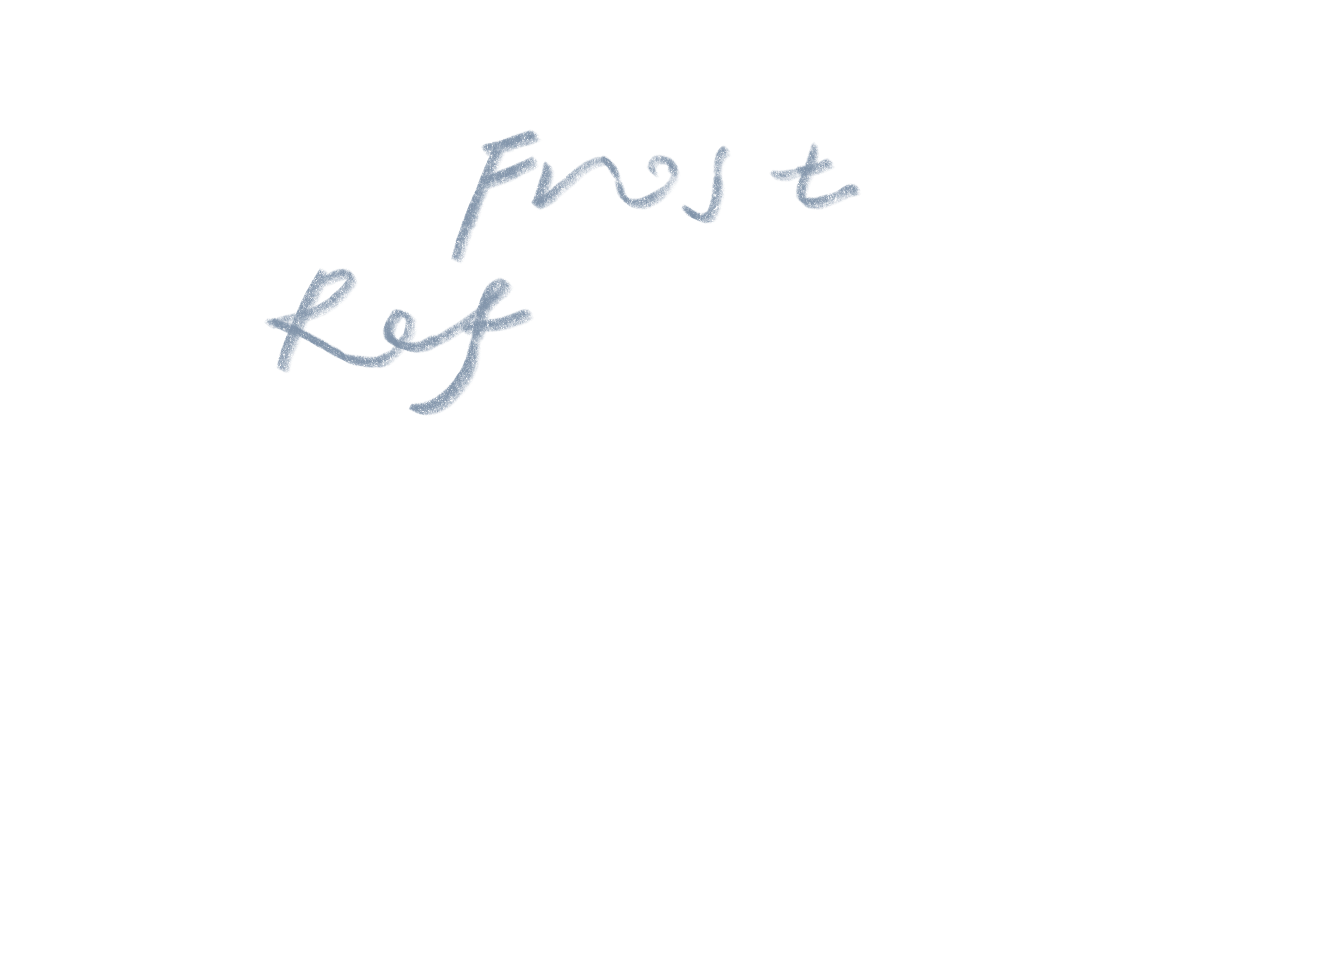 Frost
Ref